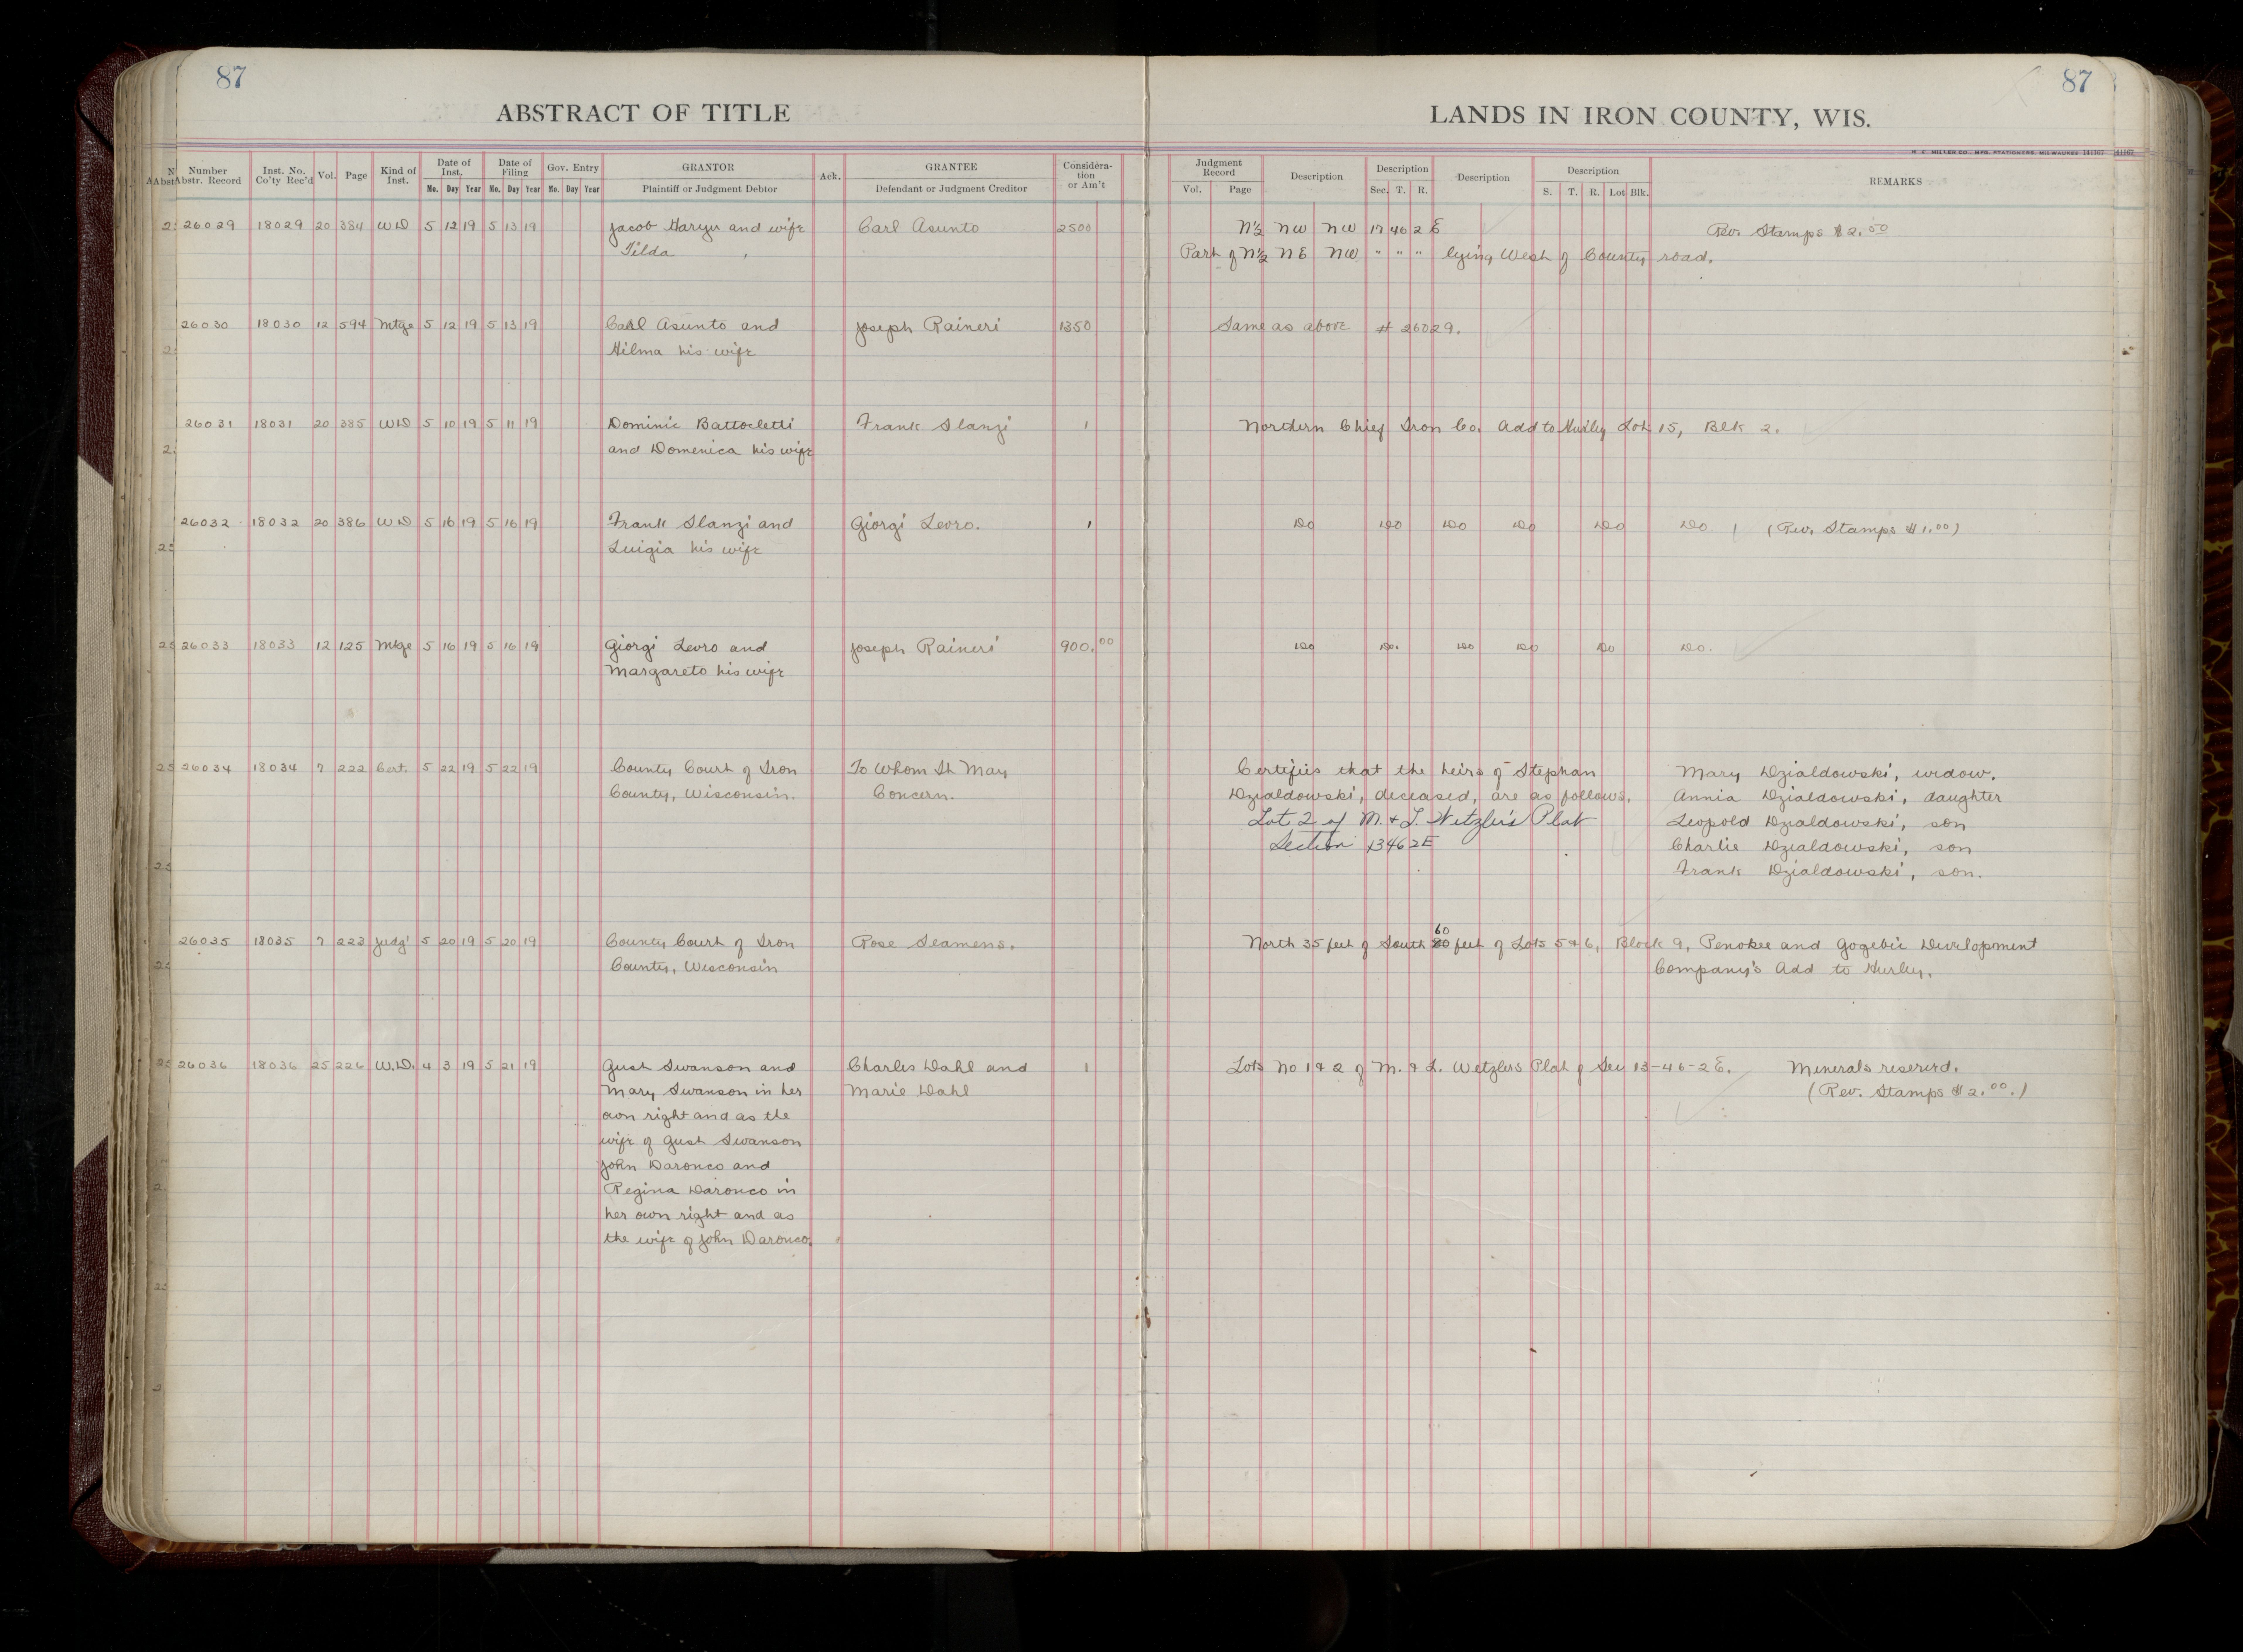 87
87
ABSTRACT OF TITLE
LANDS IN IRON COUNTY, WIS.
H. C. MILLER CO., MFG. STATIONERS, MILWAUKEE
Number Abstr. Record | Inst. No. Co'ty Rec'd | Vol. | Page | Kind of Inst. | Date of Inst. Mo. Day Year | Date of Filing Mo. Day Year | Gov. Entry Mo. Day Year | GRANTOR Plaintiff or Judgment Debtor | Ack. | GRANTEE Defendant or Judgment Creditor | Considera-tion or Am't | Judgment Record Vol. Page | Description | Description Sec. T. R. | Description | Description S. T. R. Lot Blk. | REMARKS
26029 18029 20 384 WD 5 12 19 5 13 19 Jacob Haryu and wife Carl Asunto 2500 N½ NW NW 17 46 2 E Rev. Stamps $2.00
Tilda Part of N½ NE NW " " " lying West of County road.
26030 18030 12 594 Mtge 5 12 19 5 13 19 Carl Asunto and Joseph Raineri 1350 Same as above # 26029.
Hilma his wife
26031 18031 20 385 WD 5 10 19 5 11 19 Dominic Battocletti Frank Slanzi 1 Northern Chief Iron Co. Add to Hurley Lot 15, Blk 2.
and Domenica his wife
26032 18032 20 386 WD 5 16 19 5 16 19 Frank Slanzi and Giorgi Levro. 1 Do Do Do Do Do Do (Rev. Stamps $1.00)
Luigia his wife
26033 18033 12 125 Mtge 5 16 19 5 16 19 Giorgi Levro and Joseph Raineri 900.00 Do Do. Do Do Do Do.
Margareto his wife
26034 18034 7 222 Cert. 5 22 19 5 22 19 County Court of Iron To Whom It May Certifies that the heirs of Stephan Mary Dzialdowski, widow.
County, Wisconsin. Concern. Dzialdowski, deceased, are as follows. Annia Dzialdowski, daughter
Lot 2 of M. & L. Wetzler's Plat Leopold Dzialdowski, son
Section 13 46 2E Charlie Dzialdowski, son
Frank Dzialdowski, son.
26035 18035 7 223 Judg' 5 20 19 5 20 19 County Court of Iron Rose Seamens. North 35 feet of South 60 feet of Lots 5 & 6, Block 9, Penokee and Gogebic Development
County, Wisconsin Company's Add to Hurley.
26036 18036 25 226 W.D. 4 3 19 5 21 19 Gust Swanson and Charles Dahl and 1 Lots No 1 & 2 of M. & L. Wetzlers Plat of Sec 13-46-2E. Minerals reserved.
Mary Swanson in her Marie Dahl (Rev. Stamps $2.00.)
own right and as the
wife of Gust Swanson
John Daronco and
Regina Daronco in
her own right and as
the wife of John Daronco.